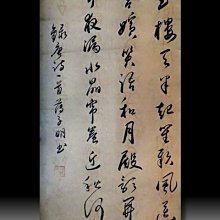 玉樓天半起笙歌風送
宮嬪笑語和月殿影開
聞夜漏水晶帘卷近秋河
錄唐詩一首 子明書